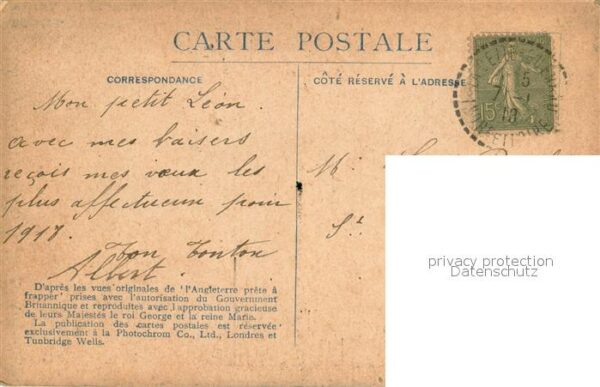 CARTE POSTALE
CORRESPONDANCE
CÔTÉ RÉSERVÉ À L'ADRESSE
Mon petit Léon.
avec mes baisers
reçois mes vœux les
plus affectueux pour
1918.
Ton Tonton
Albert.
M.
St
15c
D'après les vues originales de "l'Angleterre prête à
frapper" prises avec l'autorisation du Gouvernment
Britannique et reproduites avec l'approbation gracieuse
de leurs Majestés le roi George et la reine Marie.
La publication des cartes postales est réservée
exclusivement à la Photochrom Co., Ltd., Londres et
Tunbridge Wells.
privacy protection
Datenschutz